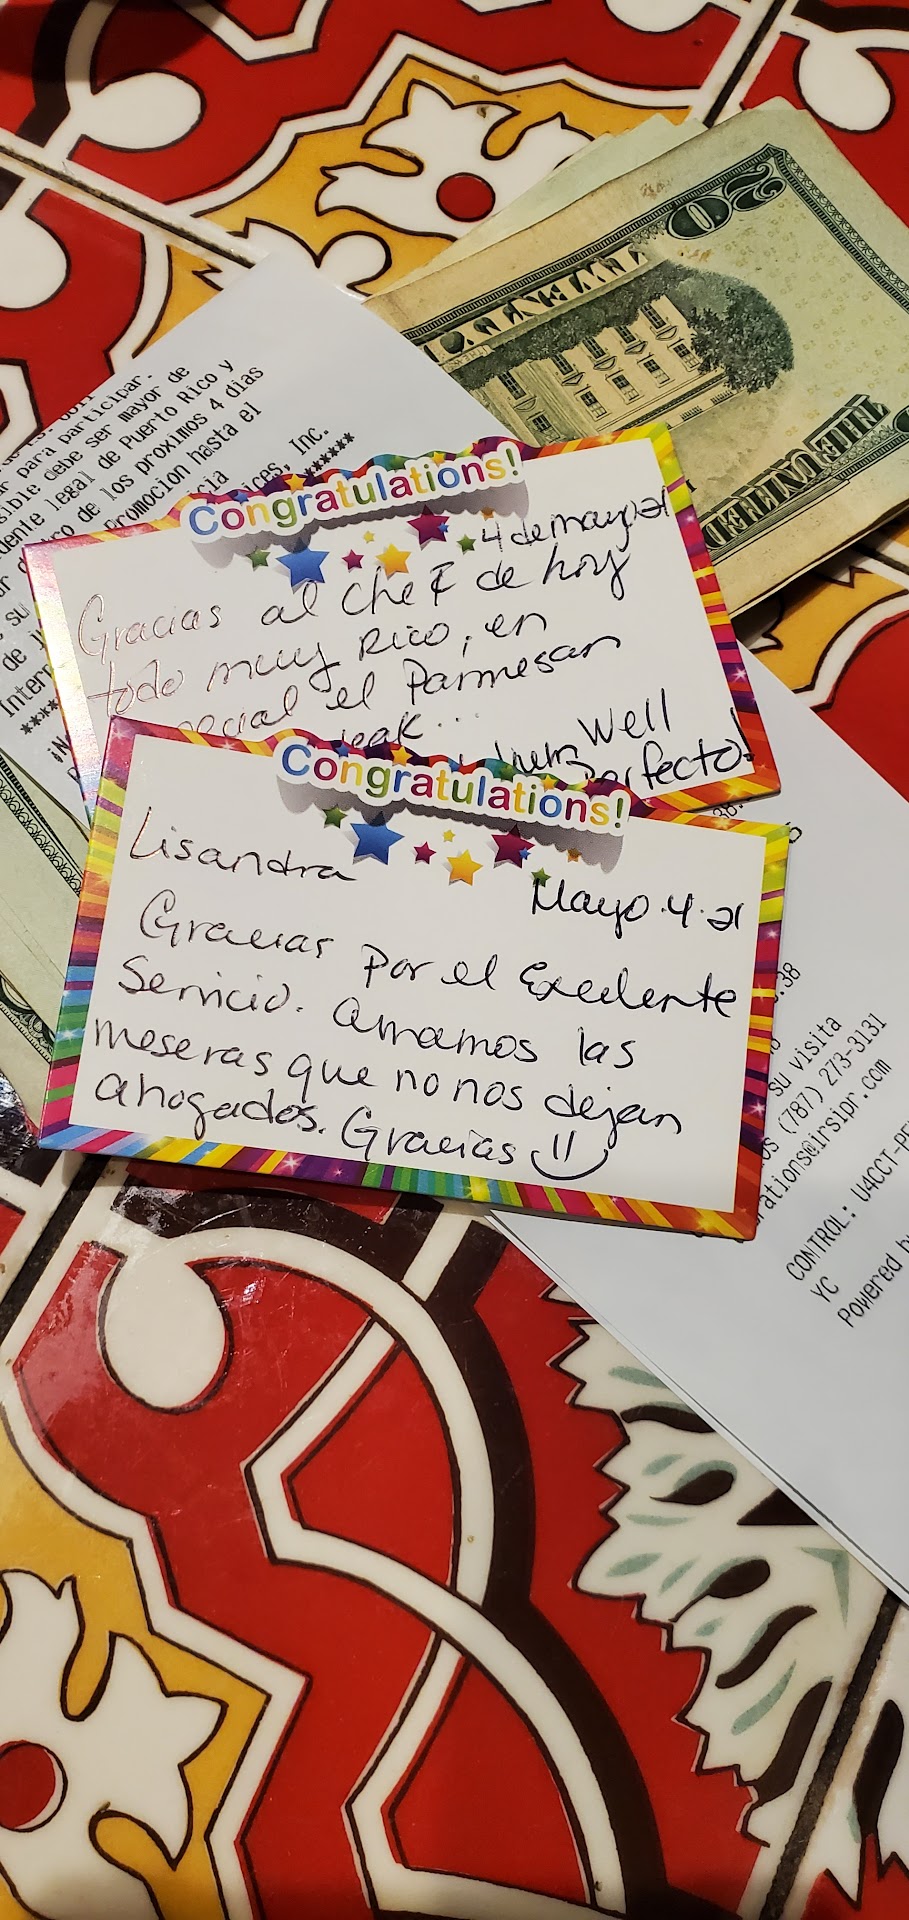 20
TWENTY
THE UNITED
para participar.
debe ser mayor de
legal de Puerto Rico y
de los proximos 4 dias
Promocion hasta el
Inc.
Congratulations!
4 de mayo 21
Gracias al Chef de hoy
todo muy Rico, en
el Parmesan
Well
Perfecto!
Congratulations!
Lisandra
Mayo.4.21
Gracias por el Execelente
Servicio. Amamos las
meseras que no nos dejan
ahogados. Gracias
.38
su visita
(787) 273-3131
@irsipr.com
CONTROL: U4CCT-
YC
Powered